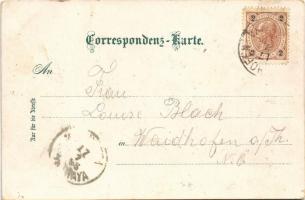 Correspondenz-Karte.
An
Frau
Louise Blach
in Waidhofen a/Th.
N.Ö
Nur für die Adresse
17
AYA